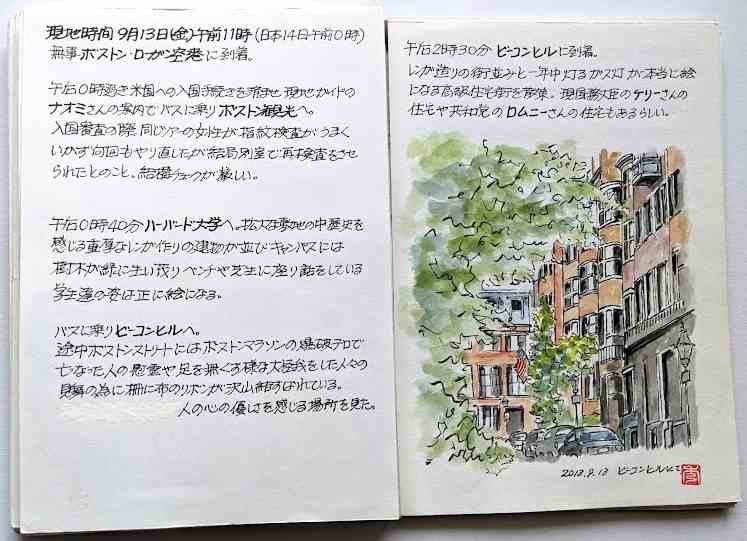 現地時間 9月13日(金)午前11時(日本14日午前0時)
無事 ボストン・ローガン空港に到着。
午后0時過ぎ 米国への入国手続きを済ませ 現地ガイドの
ナオミさんの案内でバスに乗り ボストン観光へ。
入国審査の際 同じツアーの女性が 指紋検査が うまく
いかず 何回もやり直したが 結局 別室で 再検査をさせ
られたとのこと、結構チェックが 厳しい。
午后0時40分 ハーバード大学へ。拡大な敷地の中 歴史を
感じる重厚なレンガ作りの建物が並び キャンパスには
樹木が緑に生い茂り ベンチや芝生に座り 話をしている
学生達の姿は正に絵になる。
バスに乗り ビーコンヒルへ。
途中ボストンストリートにはボストンマラソンの爆破テロで
亡なった人の慰霊や 足を無くす様な大怪我をした人々の
見舞の為に 柵に布のリボンが 沢山結ばれている。
人の心の優しさを感じる場所を見た。
午后2時30分 ビーコンヒルに到着。
レンガ造りの街並みと一年中灯るガス灯が本当に絵
になる高級住宅街を散策、現国務大臣のケリーさんの
住宅や共和党のロムニーさんの住宅もあるらしい。
2013.9.13 ビーコンヒルにて